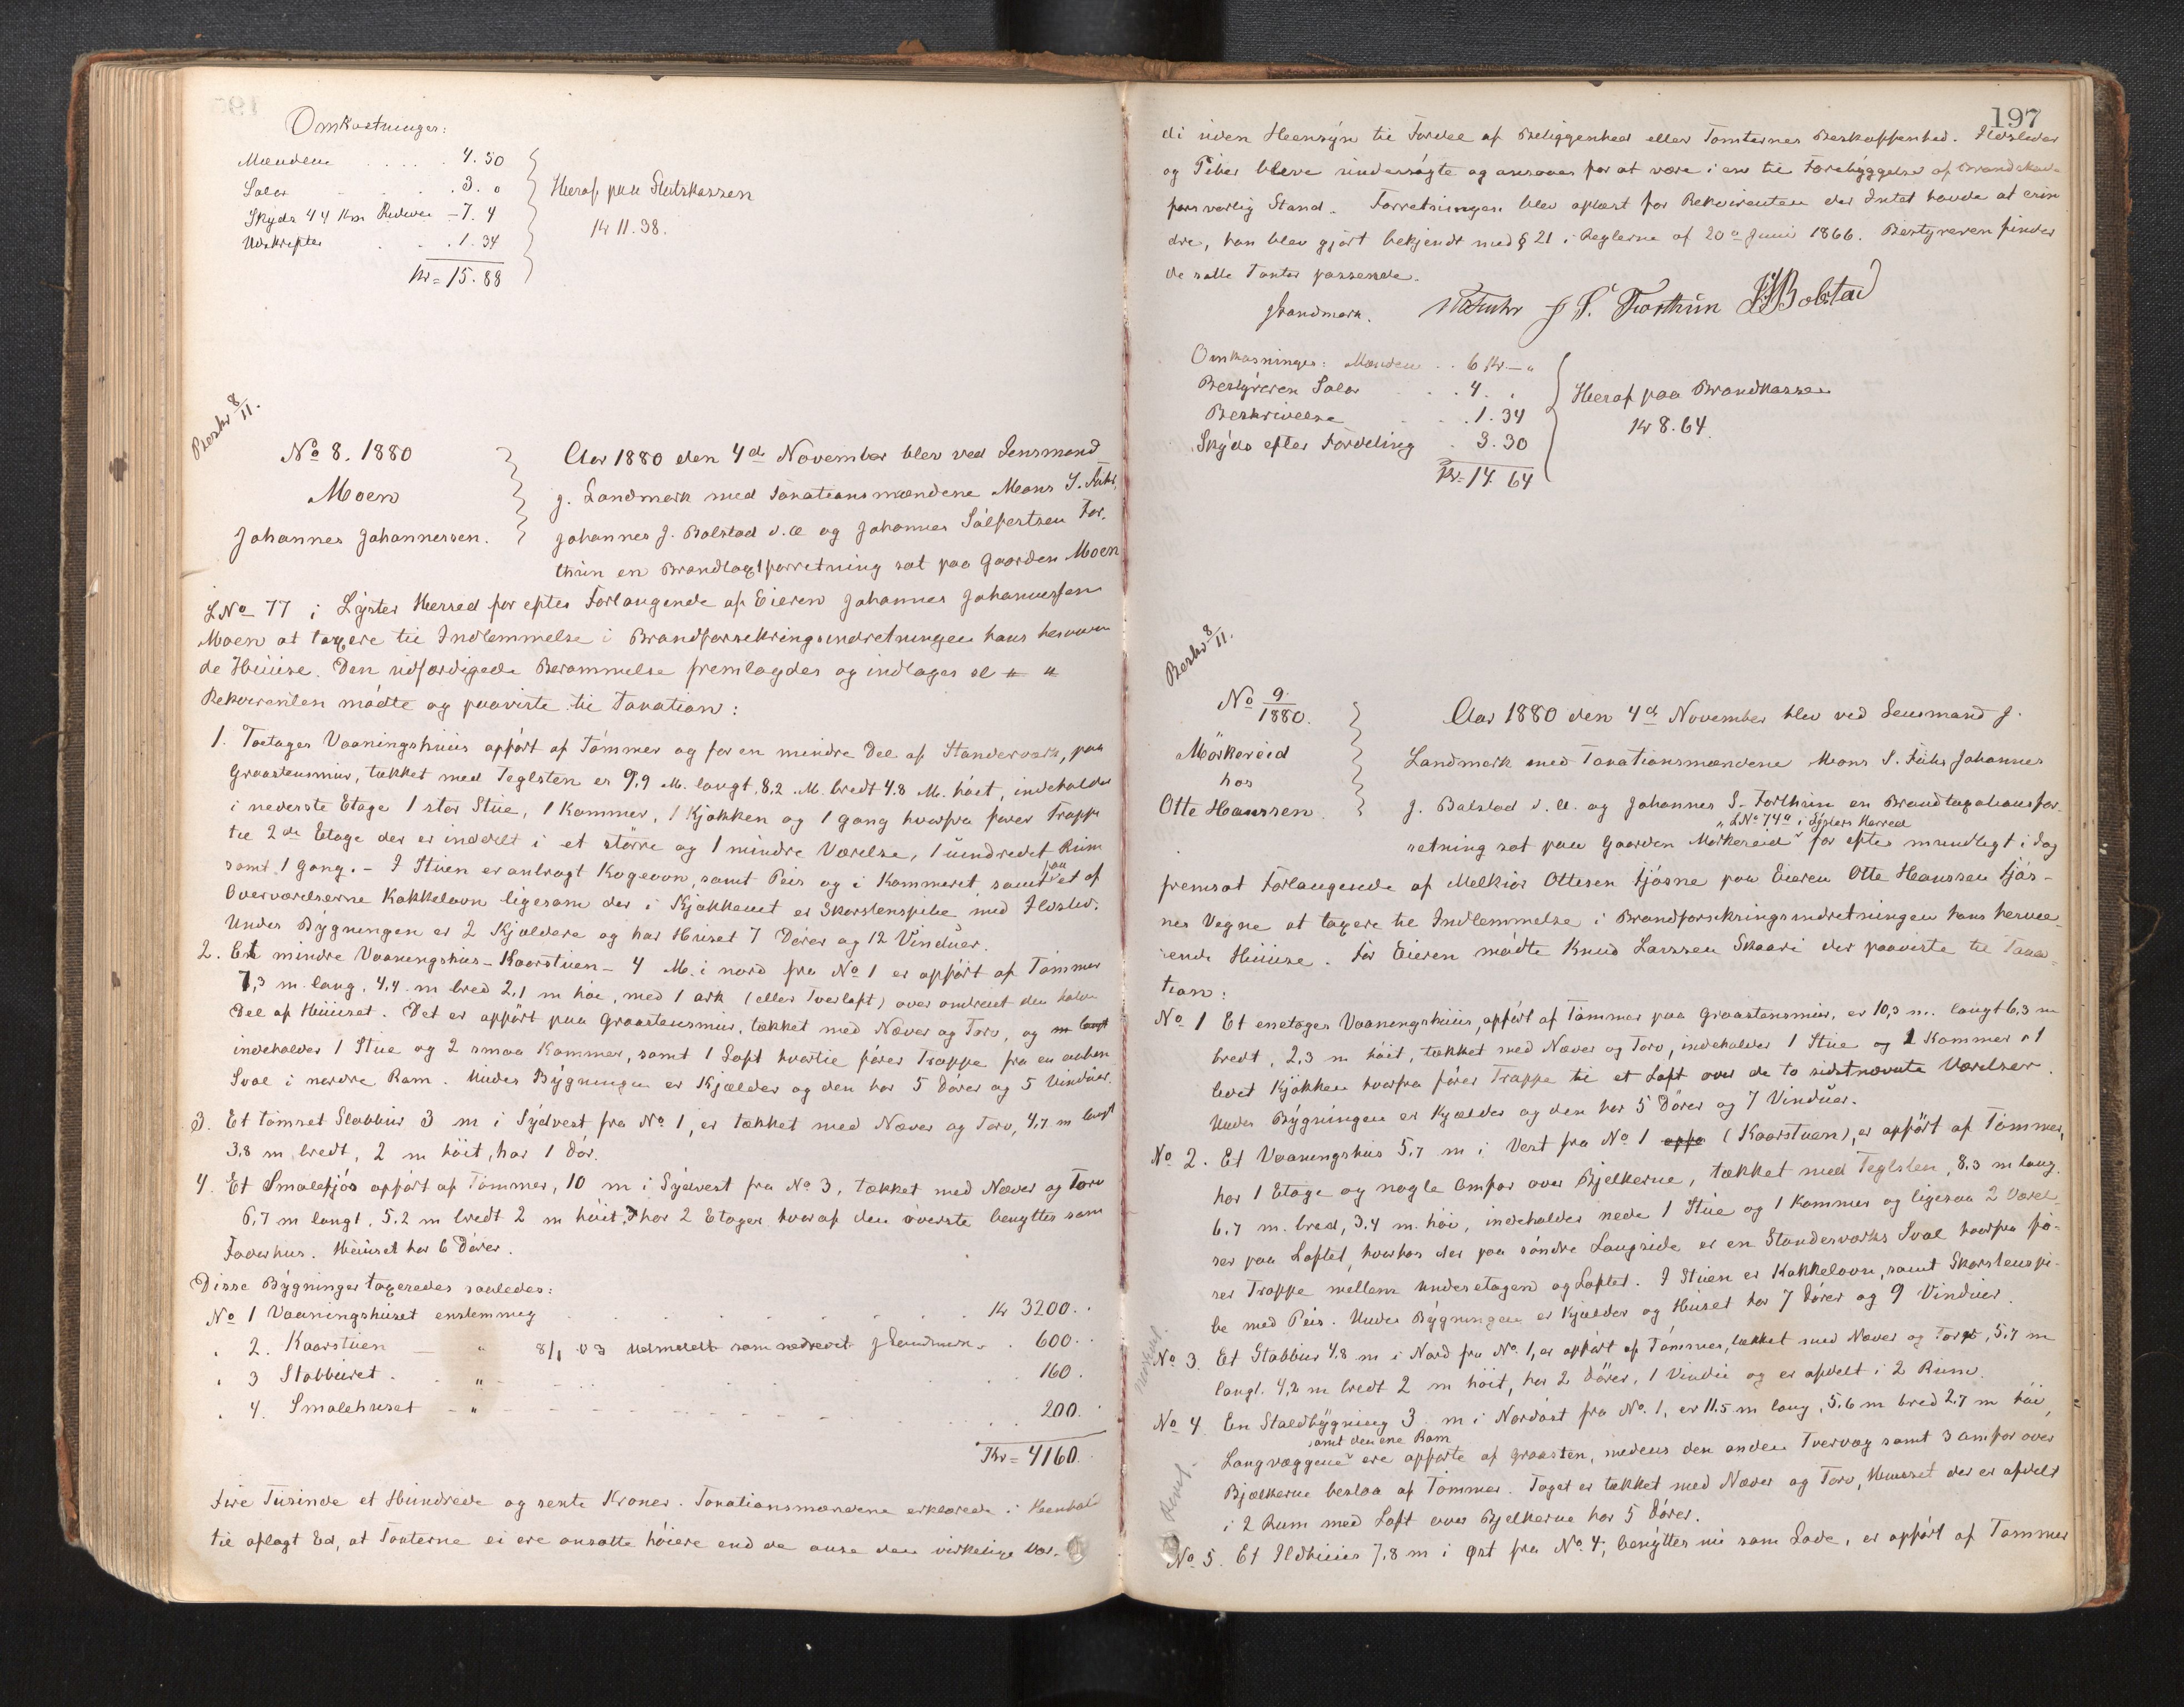 Omkostninger:
Mændene . . . . 4.50
Salær . . . 3. 0
Skyds 44 Km Rideve - 7. 4
Udskrifter . . . 1. 34
Kr = 15. 88
Heraf paa Statskassen
Kr 11. 38.
Beskr 8/11.
No 8. 1880
Moen
Johannes Johannessen.
Aar 1880 den 4de November blev ved Lensmand
J. Landmark med Taxationsmændene Mons S. Fuhr,
Johannes J. Bolstad d. æ og Johannes Sjulfestsen For-
thun en Brandtaxtforretning sat paa Gaarden Moen
LNo 77 i Lyster Herred for efter Forlangende af Eieren Johannes Johannessen
Moen at taxere til Indlemmelse i Brandforsikringsindretningen hans heromm
de Huuse. Den udfærdigede Berammelse fremlagdes og indtages sl " "
Rekvirenten mødte og paaviste til Taxation:
1. Toetages Vaaningshuus opført af Tømmer og for en mindre Del af Standerværk, paa
Graastensmuur, tækket med Teglsten er 9,9 M. langt, 8,2 M. bredt 4.8 M. høit, indeholder
i nederste Etage 1 stor Stue, 1 Kammer, 1 Kjøkken og 1 Gang hvorfra fører Trappe
til 2den Etage der er inddelt i et større og 1 mindre Værelse, 1 uindredet Rum
samt 1 Gang. - I Stuen er anbragt Kogeovn, samt Peis og i Kammeret samt paa et af
Overværelserne Kakkelovn ligesom der i Kjøkkenet er Skorstenspibe med Ildsted.
Under Bygningen er 2 Kjældere og har Huset 7 Dører og 12 Vinduer.
2. Et mindre Vaaningshus - Kaarstuen - 4 M. i nord fra No 1 er opført af Tømmer
7,3 m lang, 4,4 m bred 2,1 m høi, med 1 ark (eller Tverloft) over omtrent den halve
Deel af Huuset. Det er opført paa Graastensmur, tækket med Næver og Torv, og
indeholder 1 Stue og 2 smaa Kammer, samt 1 Loft hvortil fører Trappe fra en aaben
Sval i nordre Ram. Under Bygningen er Kjælder og den har 5 Dører og 5 Vinduer.
3. Et tømret Stabbur 3 m i Sydvest fra No 1, er tækket med Næver og Torv, 4,7 m langt
3,8 m bredt, 2 m høit, har 1 Dør.
4. Et Smalefjøs opført af Tømmer, 10 m i Sydvest fra No 3, tækket med Næver og Torv
6,7 m langt, 5.2 m bredt 2 m høit, har 2 Etager hvoraf den øverste benyttes som
Foderhus. Huuset har 6 Dører.
Disse Bygninger taxeredes saaledes:
No 1 Vaaningshuset enstemmig . . . . Kr 3200. .
" 2. Kaarstuen — " 8/1 03 udmeldt som nedrevet J Landmark . 600. .
" 3 Stabburet . " . . . . 160 .
" 4. Smalehuset - " - - - - 200. .
Kr = 4160. .
Fire Tusinde et Hundrede og sexti Kroner. Taxationsmændene erklærede i Henhold
til aflagt Ed, at Taxterne ei ere ansatte høiere end de anse den virkelige Vær-
197
di uden Hensyn til Fordel af Beliggenhed eller Tomternes Beskaffenhed. Ildsteder
og Piber bleve undersøgte og ansaaes for at være i en til Forebyggelse af Brandskade
forsvarlig Stand. Forretningen blev oplæst for Rekvirenten der Intet havde at erin
dre, han blev gjort bekjendt med § 21 i Reglerne af 20de Juni 1866. Bestyreren finder
de satte Taxter passende.
J Landmark. MSFuhr J S. Forthun JJBolstad
Omkosninger: Mændene . . 6 Kr - "
Bestyreren Salær . . 4. "
Beskrivelse . . 1. 34
Skyds efter Fordeling . 3. 30
Kr = 14 64
Heraf paa Brandkassen
Kr 8. 64.
Beskr 8/11.
No 9/1880.
Mørkereid
hos
Otte Hanssen.
Aar 1880 den 4de November blev ved Lensmand J.
Landmark med Taxationsmændene Mons S. Fuhr Johannes
J. Bolstad d. æ. og Johannes S. Forthun en Brandtaxationsfor
"LNo 74a i Lysters Herred
retning sat paa Gaarden Mørkereid" for efter mundtligt i Dag
fremsat Forlangende af Melkior Ottesen Fjøsne paa Eieren Otte Hanssen Fjøs-
nes Vegne at taxere til Indlemmelse i Brandforsikringsindretningen hans hervæ-
rende Huuse. For Eieren mødte Knud Larssen Skaari der paaviste til Taxa-
tion:
No 1 Et enetages Vaaningshuus, opført af Tømmer paa Graastensmur, er 10,3 m. langt 6,3 m
bredt, 2,3 m høit, tækket med Næver og Torv, indeholder 1 Stue og 1 Kammer " 1
lidet Kjøkken hvorfra fører Trappe til et Loft over de to sidstnævnte Værelser.
Under Bygningen er Kjælder og den har 5 Dører og 7 Vinduer.
No 2. Et Vaaningshus 5,7 m i Vest fra No 1 opfø (Kaarstuen), er opført af Tømmer,
har 1 Etage og nogle Omfar over Bjelkerne, tækket med Teglsten, 8.3 m lang,
6.7 m. bred, 3,4 m. høi, indeholder nede 1 Stue og 1 Kammer og ligesaa 2 Værel-
ser paa Loftet, hvorhos der paa søndre Langside er en Standerværks Sval hvorfra fø-
rer Trappe mellem Underetagen og Loftet. I Stuen er Kakkelovn, samt Skorstenspi-
be med Peis. Under Bygningen er Kjælder og Huset har 7 Dører og 9 Vinduer.
No 3. Et Stabbur 4.8 m i Nord fra No 1, er opført af Tømmer, tækket med Næver og Torv, 5,7 m
langt. 4,2 m bredt 2 m høit, har 2 Dører, 1 Vindu og er afdelt i 2 Rum.
No 4 En Staldbygning 3 m i Nordøst fra No 1, er 11.5 m lang, 5.6 m bred 2.7 m høi,
samt den ene Ram
Langvæggene" ere opførte af Graasten, medens den anden Tvervæg samt 3 omfar over
Bjælkerne bestaa af Tømmer. Taget er tækket med Næver og Torv, Huuset der er afdelt
i 2 Rum med Loft over Bjelkerne har 5 Dører.
No 5. Et Ildhuus 7.8 m i Øst fra No 4, benyttes nu som Lade, er opført af Tømmer